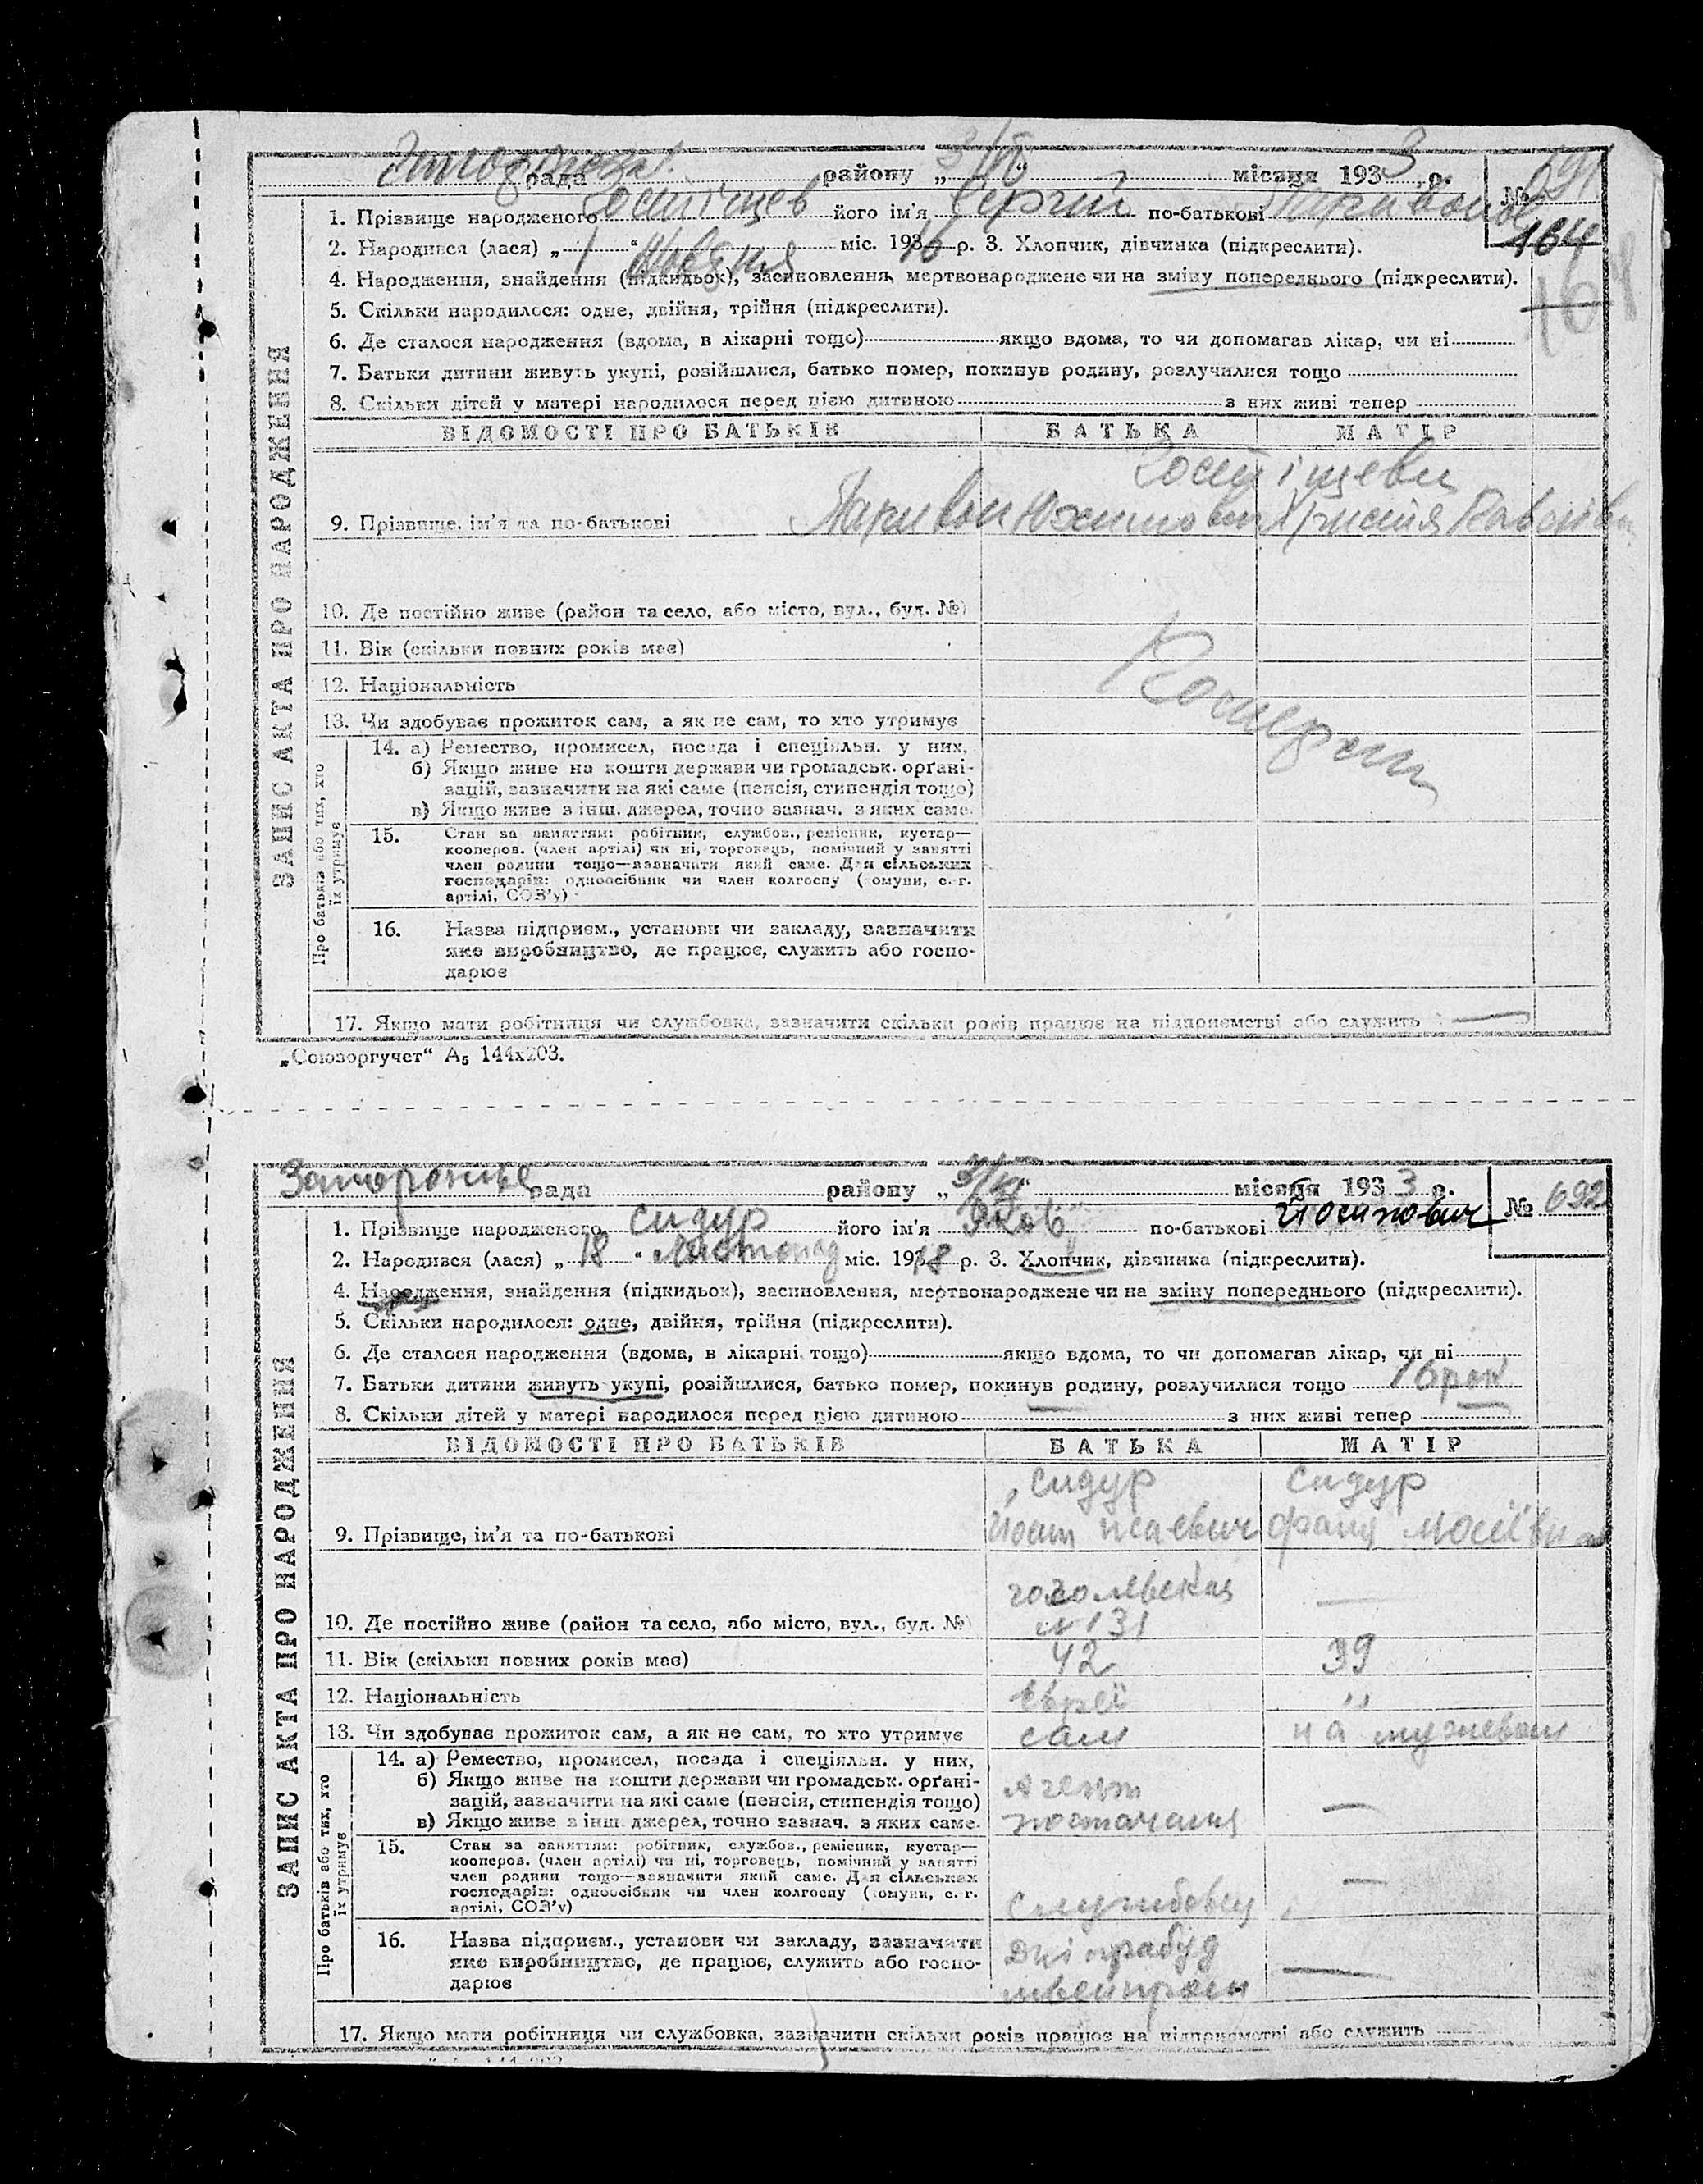 рада району „3/VI“ місяця 1933 р. № 691
1. Прізвище народженого Гостіщев його ім'я Сергій по-батькові
164
2. Народився (лася) „ 1 “ Жовтня міс. 1916 р. 3. Хлопчик, дівчинка (підкреслити).
4. Народження, знайдення (підкидьок), засиновлення, мертвонароджене чи на зміну попереднього (підкреслити).
164
5. Скільки народилося: одне, двійня, трійня (підкреслити).
6. Де сталося народження (вдома, в лікарні тощо) якщо вдома, то чи допомагав лікар, чи ні
7. Батьки дитини живуть укупі, розійшлися, батько помер, покинув родину, розлучилися тощо
8. Скільки дітей у матері народилося перед цією дитиною з них живі тепер
ЗАПИС АКТА ПРО НАРОДЖЕННЯ
ВІДОМОСТІ ПРО БАТЬКІВ БАТЬКА МАТІР
Гостіщеви
9. Прізвище, ім'я та по-батькові Паривон Юхимович Христя
10. Де постійно живе (район та село, або місто, вул., буд. №)
11. Вік (скільки повних років має)
12. Національність
13. Чи здобуває прожиток сам, а як не сам, то хто утримує
Про батьків або тих, хто їх утримує
14. а) Ремество, промисел, посада і спеціяльн. у них.
б) Якщо живе на кошти держави чи громадськ. орґані-
зацій, зазначити на які саме (пенсія, стипендія тощо)
в) Якщо живе з інш. джерел, точно зазнач. з яких саме.
15. Стан за заняттям: робітник, службов., ремісник, кустар—
кооперов. (член артілі) чи ні, торговець, помічний у занятті
член родини тощо—зазначити який саме. Для сільських
господарів: одноосібник чи член колгоспу (комуни, с.-г.
артілі, СОЗ'у)
16. Назва підприєм., установи чи закладу, зазначити
яке виробництво, де працює, служить або госпо-
дарює
17. Якщо мати робітниця чи службовка, зазначити скільки років працює на підприємстві або служить —
„Союзоргучет“ А5 144х203.
Запорожье рада району „3/VI“ місяця 1933 р. № 692
1. Прізвище народженого Сидур його ім'я Яков по-батькові Йосипович
2. Народився (лася) „ 18 “ Листопад міс. 1918 р. 3. Хлопчик, дівчинка (підкреслити).
4. Народження, знайдення (підкидьок), засиновлення, мертвонароджене чи на зміну попереднього (підкреслити).
5. Скільки народилося: одне, двійня, трійня (підкреслити).
6. Де сталося народження (вдома, в лікарні тощо) якщо вдома, то чи допомагав лікар, чи ні
7. Батьки дитини живуть укупі, розійшлися, батько помер, покинув родину, розлучилися тощо
8. Скільки дітей у матері народилося перед цією дитиною — з них живі тепер —
ЗАПИС АКТА ПРО НАРОДЖЕННЯ
ВІДОМОСТІ ПРО БАТЬКІВ БАТЬКА МАТІР
Сидур Сидур
9. Прізвище, ім'я та по-батькові Йосип Фаня Мосіївна
гоголевская —
10. Де постійно живе (район та село, або місто, вул., буд. №) № 131
11. Вік (скільки повних років має) 42 39
12. Національність Єврей "
13. Чи здобуває прожиток сам, а як не сам, то хто утримує сам на
Про батьків або тих, хто їх утримує
14. а) Ремество, промисел, посада і спеціяльн. у них,
б) Якщо живе на кошти держави чи громадськ. орґані- Агент
зацій, зазначити на які саме (пенсія, стипендія тощо) —
в) Якщо живе з інш. джерел, точно зазнач. з яких саме. постачання
15. Стан за заняттям: робітник, службов., ремісник, кустар—
кооперов. (член артілі) чи ні, торговець, помічний у занятті
член родини тощо—зазначити який саме. Для сільських —
господарів: одноосібник чи член колгоспу (комуни, с.-г.
артілі, СОЗ'у) Службовец
16. Назва підприєм., установи чи закладу, зазначити
яке виробництво, де працює, служить або госпо- —
дарює швейпром
17. Якщо мати робітниця чи службовка, зазначити скільки років працює на підприємстві або служить